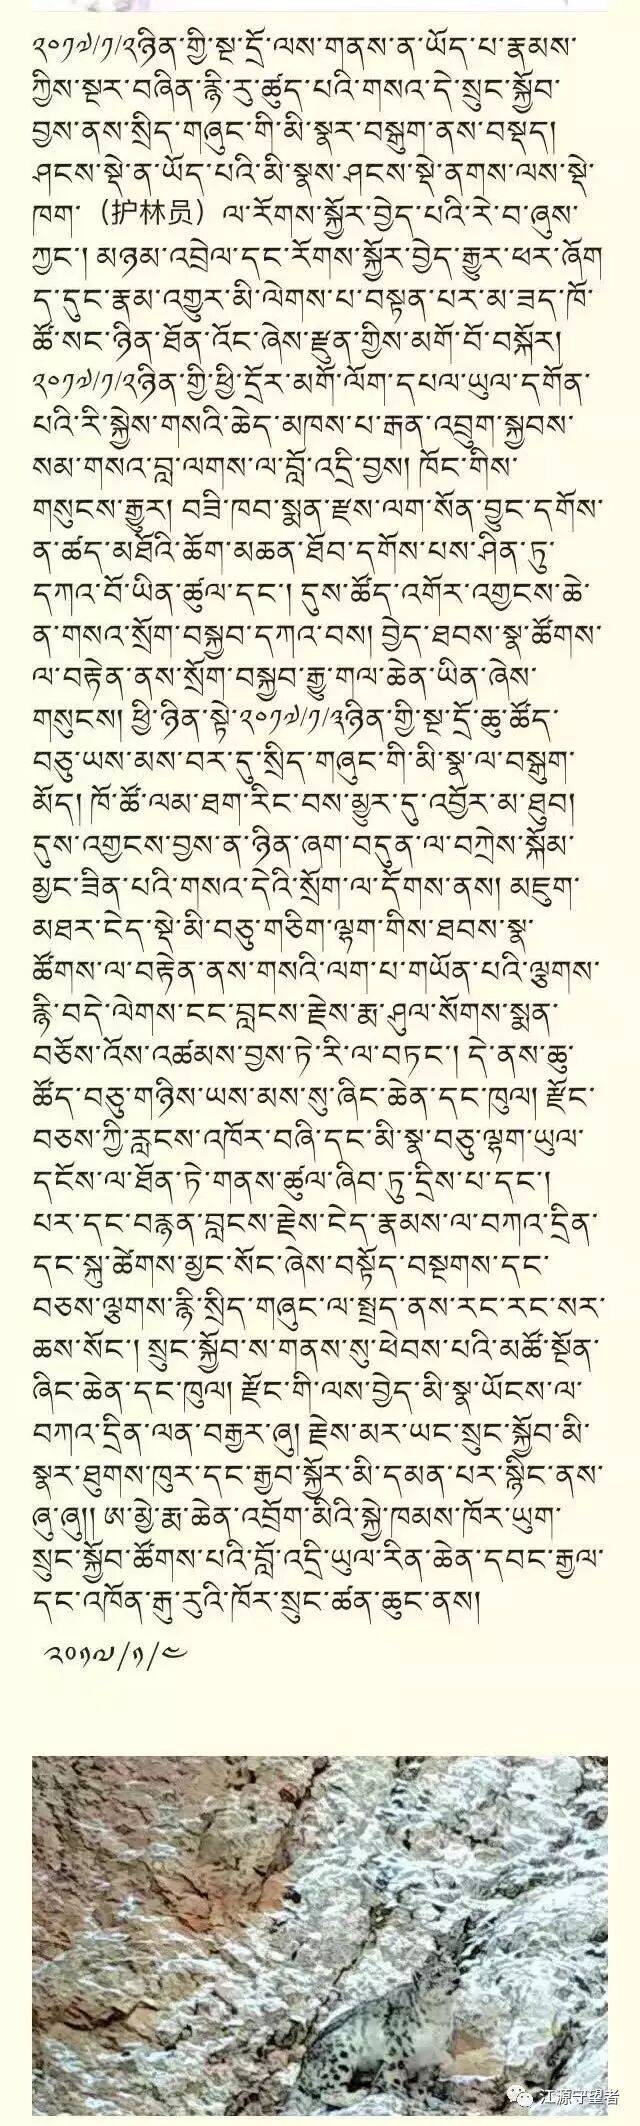 ༢༠༡༧/༡/༢ཉིན་གྱི་སྔ་དྲོ་ལས་གནས་ན་ཡོད་པ་རྣམས་
ཀྱིས་སྔར་བཞིན་རྙི་རུ་ཚུད་པའི་གསའ་དེ་སྲུང་སྐྱོབ་
བྱས་ནས་སྲིད་གཞུང་གི་མི་སྣར་བསྒུག་ནས་བསྡད།
ཤངས་སྡེ་ན་ཡོད་པའི་མི་སྣས་ཤངས་སྡེ་ནགས་ལས་སྡེ་
ཁག་（护林员）ལ་རོགས་སྐྱོར་བྱེད་པའི་རེ་བ་ཞུས་
ཀྱང་། མཉམ་འབྲེལ་དང་རོགས་སྐྱོར་བྱེད་རྒྱུར་ཕར་ཞོག
ད་དུང་རྣམ་འགྱུར་མི་ལེགས་པ་བསྟན་པར་མ་ཟད་ཁོ་
ཚོ་སང་ཉིན་ཐོན་འོང་ཞེས་རྫུན་གྱིས་མགོ་བོ་བསྐོར།
༢༠༡༧/༡/༢ཉིན་གྱི་ཕྱི་དྲོར་མགོ་ལོག་དཔལ་ཡུལ་དགོན་
པའི་རི་སྐྱེས་གསའི་ཆེད་མཁས་པ་རྒན་འབྲུག་སྐྱབས་
སམ་གསའ་བླ་ལགས་ལ་བློ་འདྲི་བྱས། ཁོང་གིས་
གསུངས་རྒྱུར། བཟི་ཁབ་སྨན་རྫས་ལག་སོན་བྱུང་དགོས་
ན་ཚད་མཐོའི་ཆོག་མཆན་ཐོབ་དགོས་པས་ཤིན་ཏུ་
དཀའ་བོ་ཡིན་ཚུལ་དང་། དུས་ཚོད་འགོར་འགྱངས་ཆེ་
ན་གསའ་སྲོག་བསྐྱབ་དཀའ་བས། བྱེད་ཐབས་སྣ་ཚོགས་
ལ་བརྟེན་ནས་སྲོག་བསྐྱབ་རྒྱུ་གལ་ཆེན་ཡིན་ཞེས་
གསུངས། ཕྱི་ཉིན་སྟེ་༢༠༡༧/༡/༣ཉིན་གྱི་སྔ་དྲོ་ཆུ་ཚོད་
བཅུ་ཡས་མས་བར་དུ་སྲིད་གཞུང་གི་མི་སྣ་ལ་བསྒུག་
མོད། ཁོ་ཚོ་ལམ་ཐག་རིང་བས་མྱུར་དུ་འབྱོར་མ་ཐུབ།
དུས་འགྱངས་བྱས་ན་ཉིན་ཞག་བདུན་ལ་བཀྲེས་སྐོམ་
མྱང་ཟིན་པའི་གསའ་དེའི་སྲོག་ལ་དོགས་ནས། མཇུག་
མཐར་ངེད་སྡེ་མི་བཅུ་གཅིག་ལྷག་གིས་ཐབས་སྣ་
ཚོགས་ལ་བརྟེན་ནས་གསའི་ལག་པ་གཡོན་པའི་ལྕགས་
རྙི་བདེ་ལེགས་ངང་བླངས་རྗེས་རྨ་ཤུལ་སོགས་སྨན་
བཅོས་འོས་འཚམས་བྱས་ཏེ་རི་ལ་བཏང་། དེ་ནས་ཆུ་
ཚོད་བཅུ་གཉིས་ཡས་མས་སུ་ཞིང་ཆེན་དང་ཁུལ། རྫོང་
བཅས་ཀྱི་རླངས་འཁོར་བཞི་དང་མི་སྣ་བཅུ་ལྷག་ཡུལ་
དངོས་ལ་ཐོན་ཏེ་གནས་ཚུལ་ཞིབ་ཏུ་དྲིས་པ་དང་།
པར་དང་བརྙན་བླངས་རྗེས་ངེད་རྣམས་ལ་བཀའ་དྲིན་
དང་སྐུ་ཚེགས་མྱང་སོང་ཞེས་བསྟོད་བསྔགས་དང་
བཅས་ལྕགས་རྙི་སྲིད་གཞུང་ལ་སྤྲད་ནས་རང་རང་སར་
ཆས་སོང་། སྲུང་སྐྱོབ་ས་གནས་སུ་ཕེབས་པའི་མཚོ་སྔོན་
ཞིང་ཆེན་དང་ཁུལ། རྫོང་གི་ལས་བྱེད་མི་སྣ་ཡོངས་ལ་
བཀའ་དྲིན་ལན་བརྒྱར་ཞུ། རྗེས་མར་ཡང་སྲུང་སྐྱོབ་མི་
སྣར་ཐུགས་ཁུར་དང་རྒྱབ་སྐྱོར་མི་དམན་པར་སྙིང་ནས་
ཞུ་ཞུ།། ཨ་མྱེ་རྨ་ཆེན་འབྲོག་མིའི་སྐྱེ་ཁམས་ཁོར་ཡུག་
སྲུང་སྐྱོབ་ཚོགས་པའི་བློ་འདྲི་ཡུལ་རིན་ཆེན་དབང་རྒྱལ་
དང་འཁོན་རྒུ་རུའི་ཁོར་སྲུང་ཚན་ཆུང་ནས།
༢༠༡༧/༡/༥
江源守望者